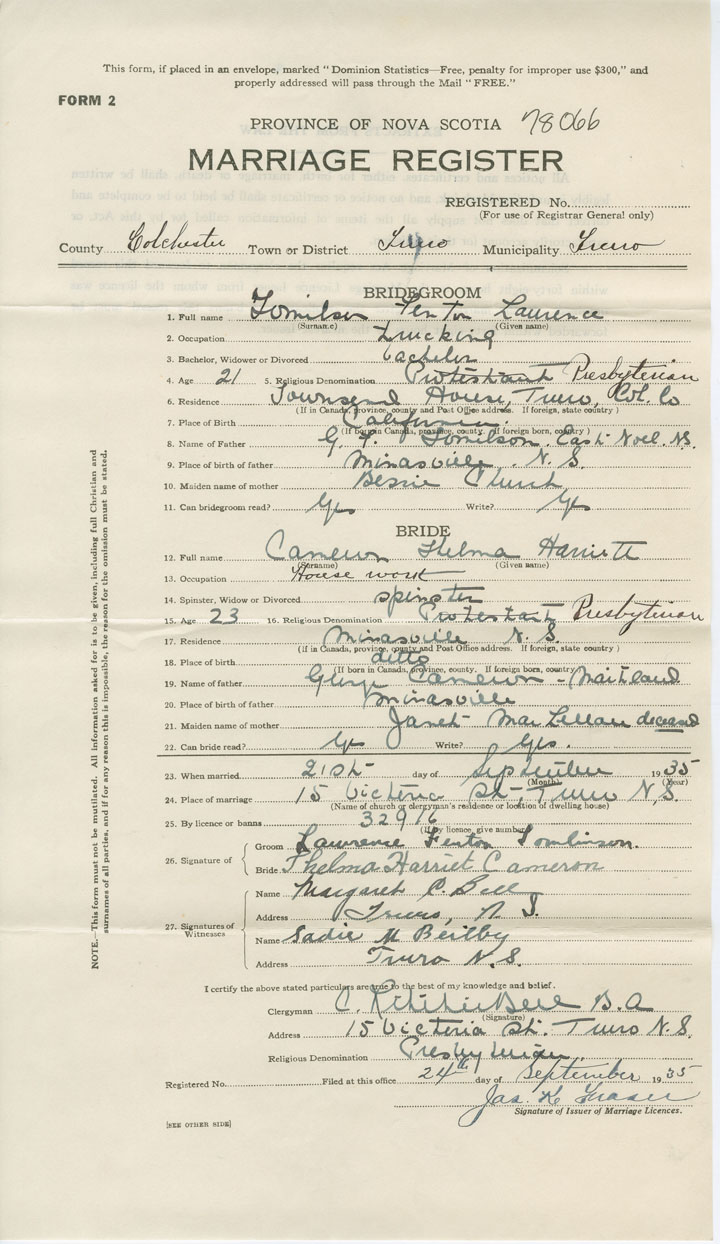 This form, if placed in an envelope, marked "Dominion Statistics—Free, penalty for improper use $300," and
properly addressed will pass through the Mail "FREE."
FORM 2
PROVINCE OF NOVA SCOTIA 78066
MARRIAGE REGISTER
REGISTERED No.
(For use of Registrar General only)
County Colchester Town or District Truro Municipality Truro
BRIDEGROOM
1. Full name Tomilson Fenton Laurence
(Surname) (Given name)
2. Occupation trucking
3. Bachelor, Widower or Divorced bachelor
4. Age 21 5. Religious Denomination Protestant Presbyterian
6. Residence Townsend House, Truro, Col. Co
(If in Canada, province, county and Post Office address. If foreign, state country)
7. Place of Birth California
(If born in Canada, province, county. If foreign born, country)
8. Name of Father G. F. Tomilson. East Noel. N.S.
9. Place of birth of father Minasville, N. S.
10. Maiden name of mother Bessie Church
11. Can bridegroom read? Yes Write? Yes
BRIDE
12. Full name Cameron Thelma Harriett
(Surname) (Given name)
13. Occupation House work
14. Spinster, Widow or Divorced spinster
15. Age 23 16. Religious Denomination Protestant Presbyterian
17. Residence Minasville N. S.
(If in Canada, province, county and Post Office address. If foreign, state country)
18. Place of birth ditto
(If born in Canada, province, county. If foreign born, country)
19. Name of father George Cameron - Maitland
20. Place of birth of father Minasville
21. Maiden name of mother Janet MacLellan deceased
22. Can bride read? Yes Write? Yes.
23. When married 21st day of September 1935
(Month) (Year)
24. Place of marriage 15 Victoria St. Truro N.S.
(Name of church or clergyman's residence or location of dwelling house)
25. By licence or banns 32916
(If by licence, give number)
26. Signature of
Groom Lawrence Fenton Tomlinson.
Bride Thelma Harriet Cameron
27. Signatures of Witnesses
Name Margaret C. Bell
Address Truro, N S.
Name Sadie M Beilby
Address Truro N.S.
I certify the above stated particulars are true to the best of my knowledge and belief.
Clergyman C. Ritchie Bell B.A
(Signature)
Address 15 Victoria St. Truro N.S.
Religious Denomination Presbyterian,
Registered No. Filed at this office 24th day of September 1935
Jas. K Fraser
Signature of Issuer of Marriage Licences.
[SEE OTHER SIDE]
NOTE.—This form must not be mutilated. All information asked for is to be given, including full Christian and
surnames of all parties, and if for any reason this is impossible, the reason for the omission must be stated.